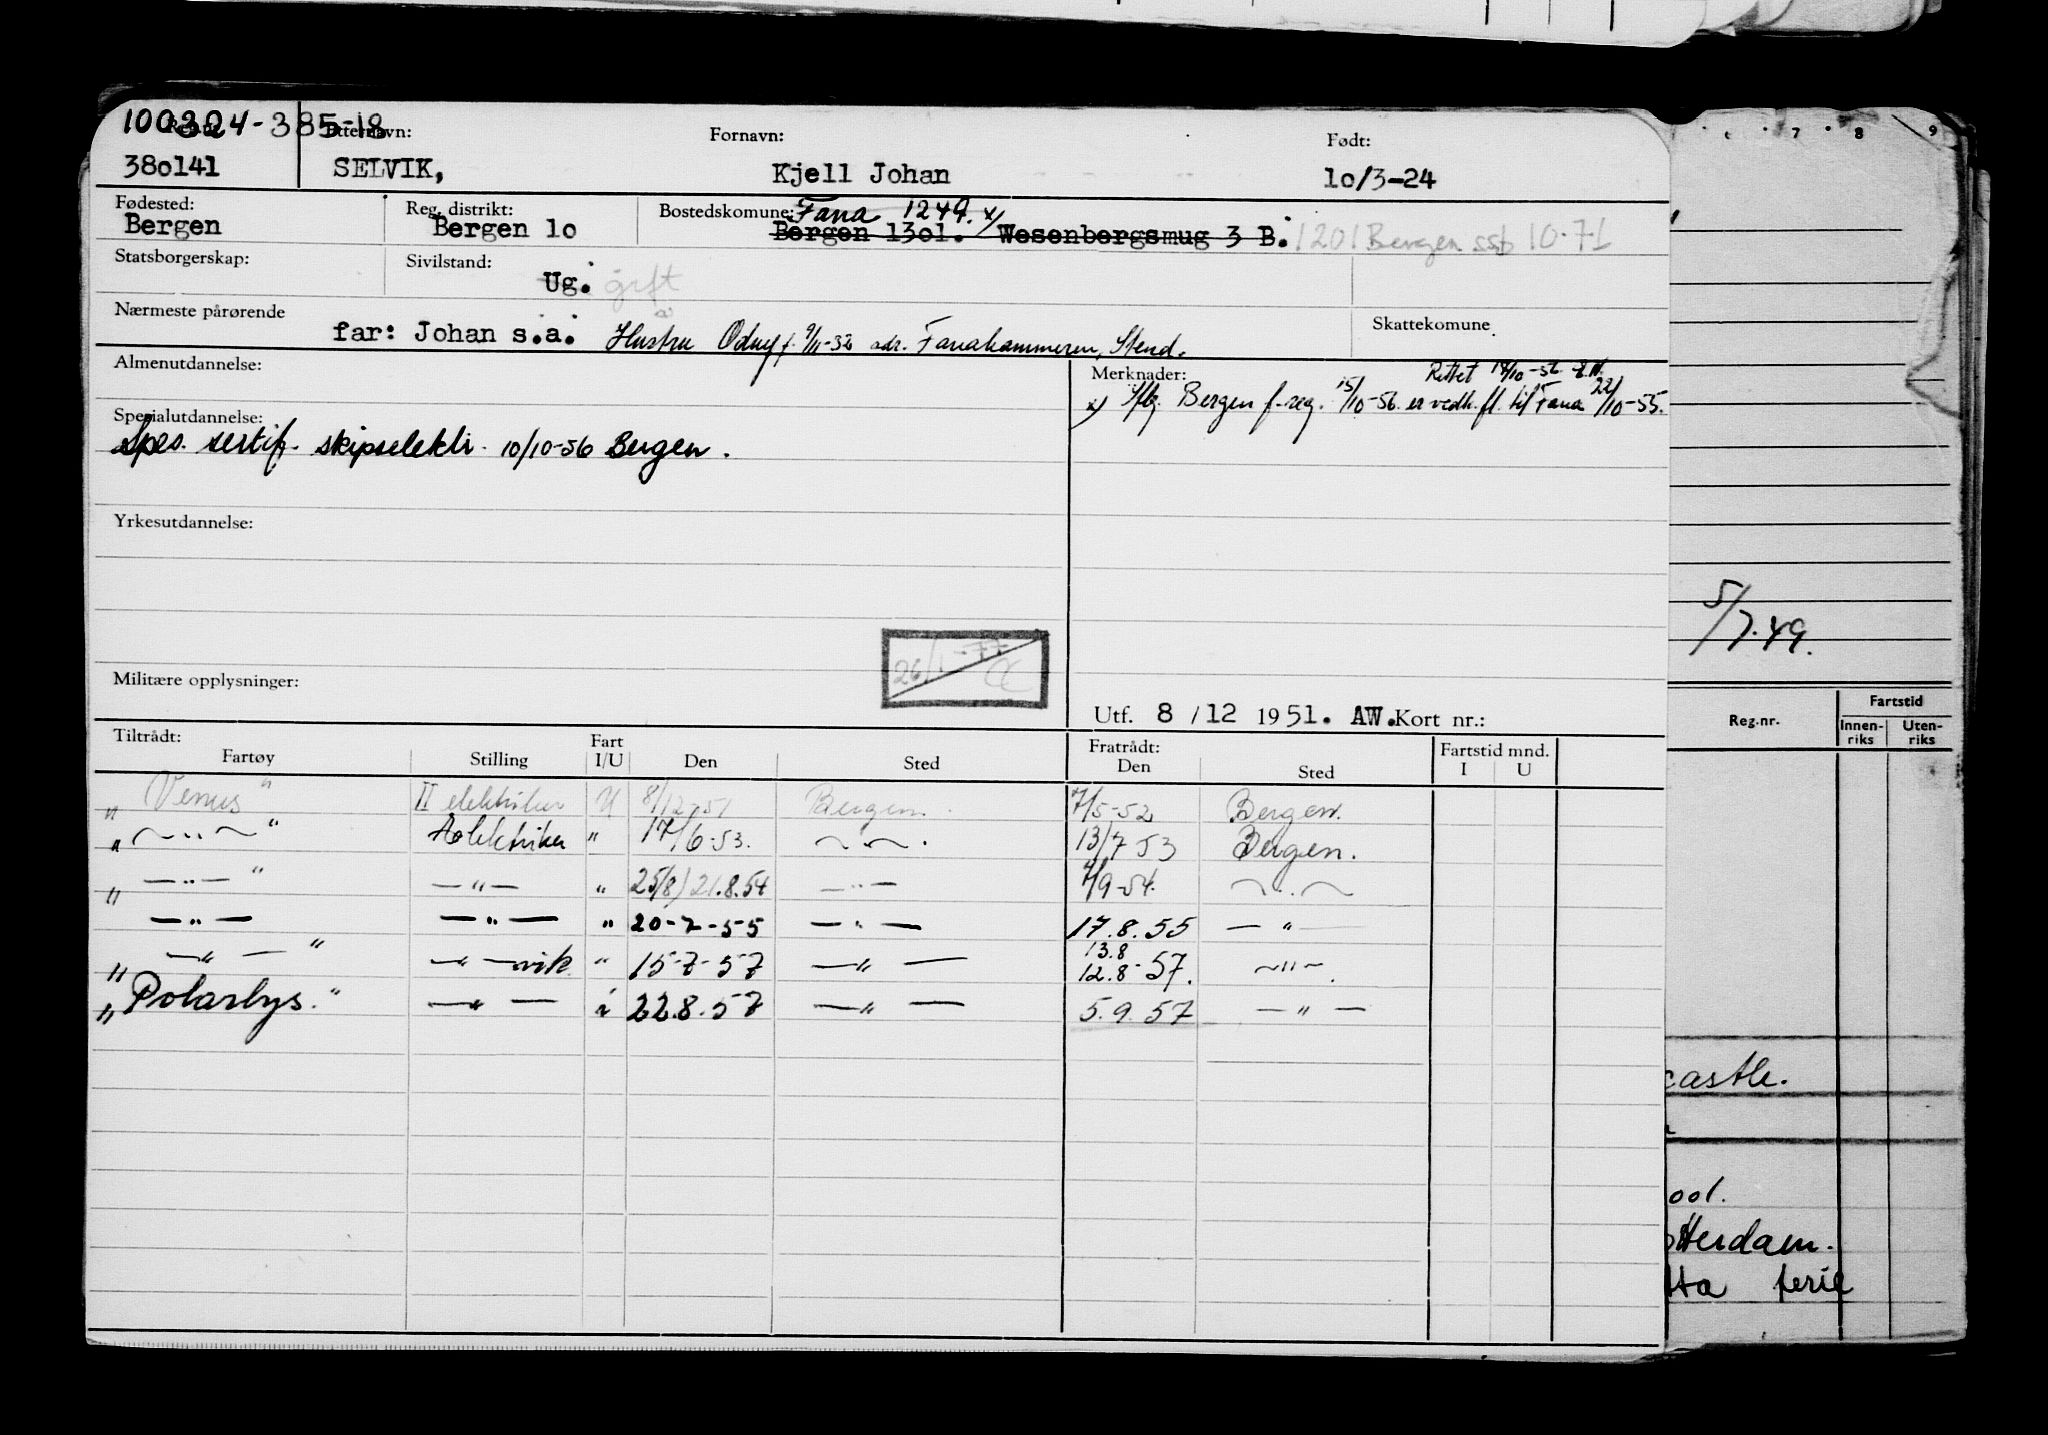 100324-385-18
Reg.nr. Etternavn: Fornavn: Født:
380141 SELVIK, Kjell Johan 10/3-24
Fødested: Reg. distrikt: Bostedskomune: Fana 1249. x)
Bergen Bergen 10 Bergen 1301. Wesenbergsmug 3 B. 1201 Bergen ssb 10-71
Statsborgerskap: Sivilstand:
Ug. gift
Nærmeste pårørende Skattekomune
far: Johan s.a. Hustru Odny f. 9/11-32 adr. Fanahammeren, Stend.
Almenutdannelse: Merknader: Rettet 18/10-56
x) Bergen f.reg. 15/10-56 er vedk. fl. til Fana 22/10-55.
Spesialutdannelse:
Spes. sertif. skipselektr. 10/10-56 Bergen.
Yrkesutdannelse:
26/1-77
Militære opplysninger:
Utf. 8/12 1951. AW. Kort nr.:
Tiltrådt: Fratrådt: Fartstid mnd.
Fartøy Stilling Fart I/U Den Sted Den Sted I U
„Venus" II elektriker U 8/12-51 Bergen. 7/5-52 Bergen.
„ — " — " elektriker " 17/6-53. — " — . 13/7 53 Bergen.
„ — " — " — " — " 25/8) 21.8.54 — " — 7/9-54. — " —
— " — — " — " 20-7-55 — " — 17.8.55 — " —
„ — " — " — " — vik. " 15-7-57 — " — 13.8 12.8-57. — " — .
„Polarlys." — " — i 22.8.57 — " — 5.9.57 — " —
7 8 9
5/7.49.
Reg.nr. Fartstid
Innen-riks Uten-riks
castle.
ool.
otterdam.
tta ferie